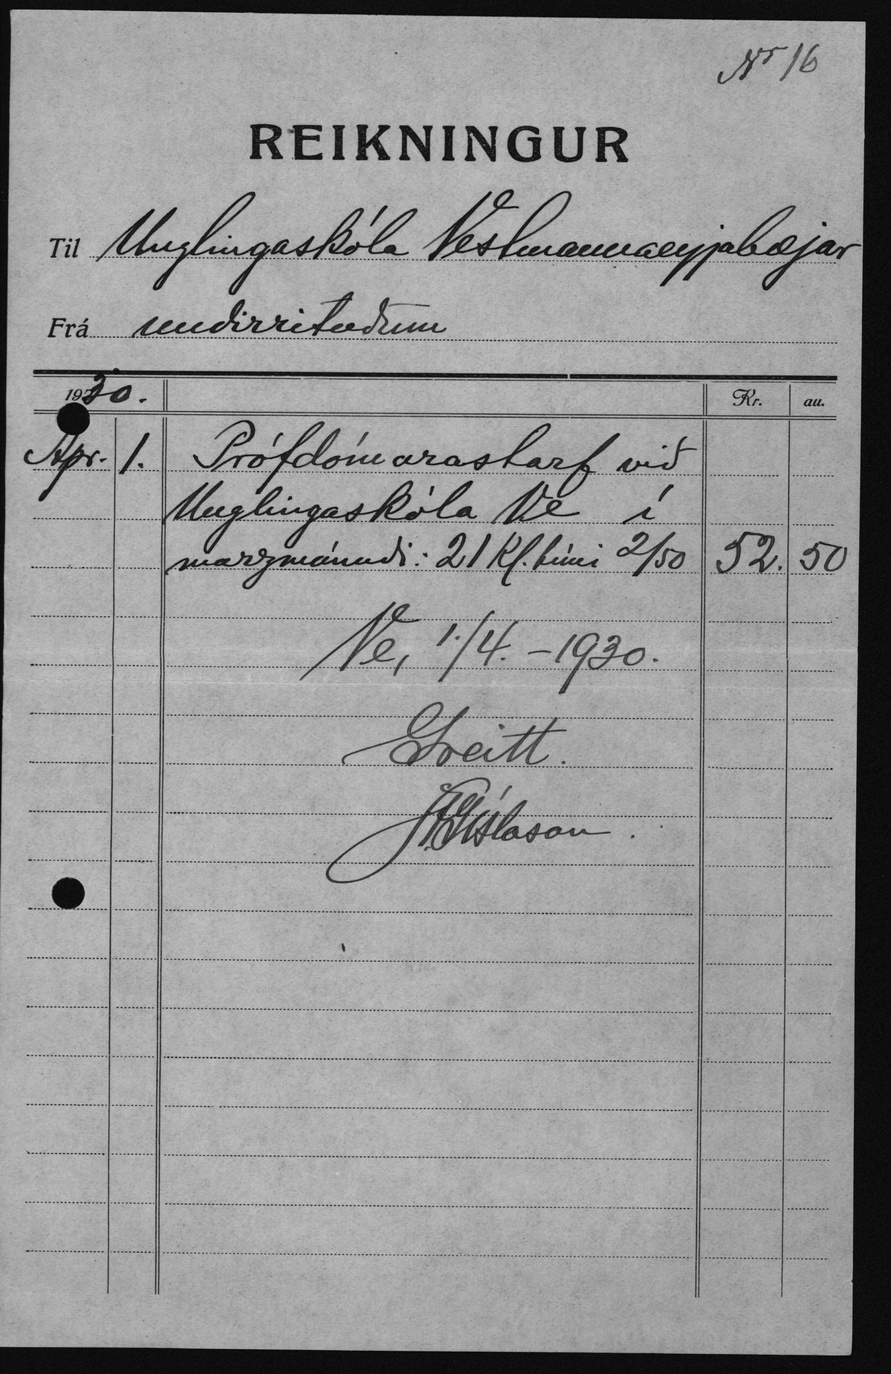 Nr 16
REIKNINGUR
Til Unglingaskóla Vestmannaeyjabæjar
Frá undirrituðum
1930. Kr. au.
Apr. 1. Prófdómarastarf við
Unglingaskóla Ve í
marzmánuði: 21 kl. tími 2/50 52. 50
Ve, 1./4. - 1930.
Greitt.
Gíslason.